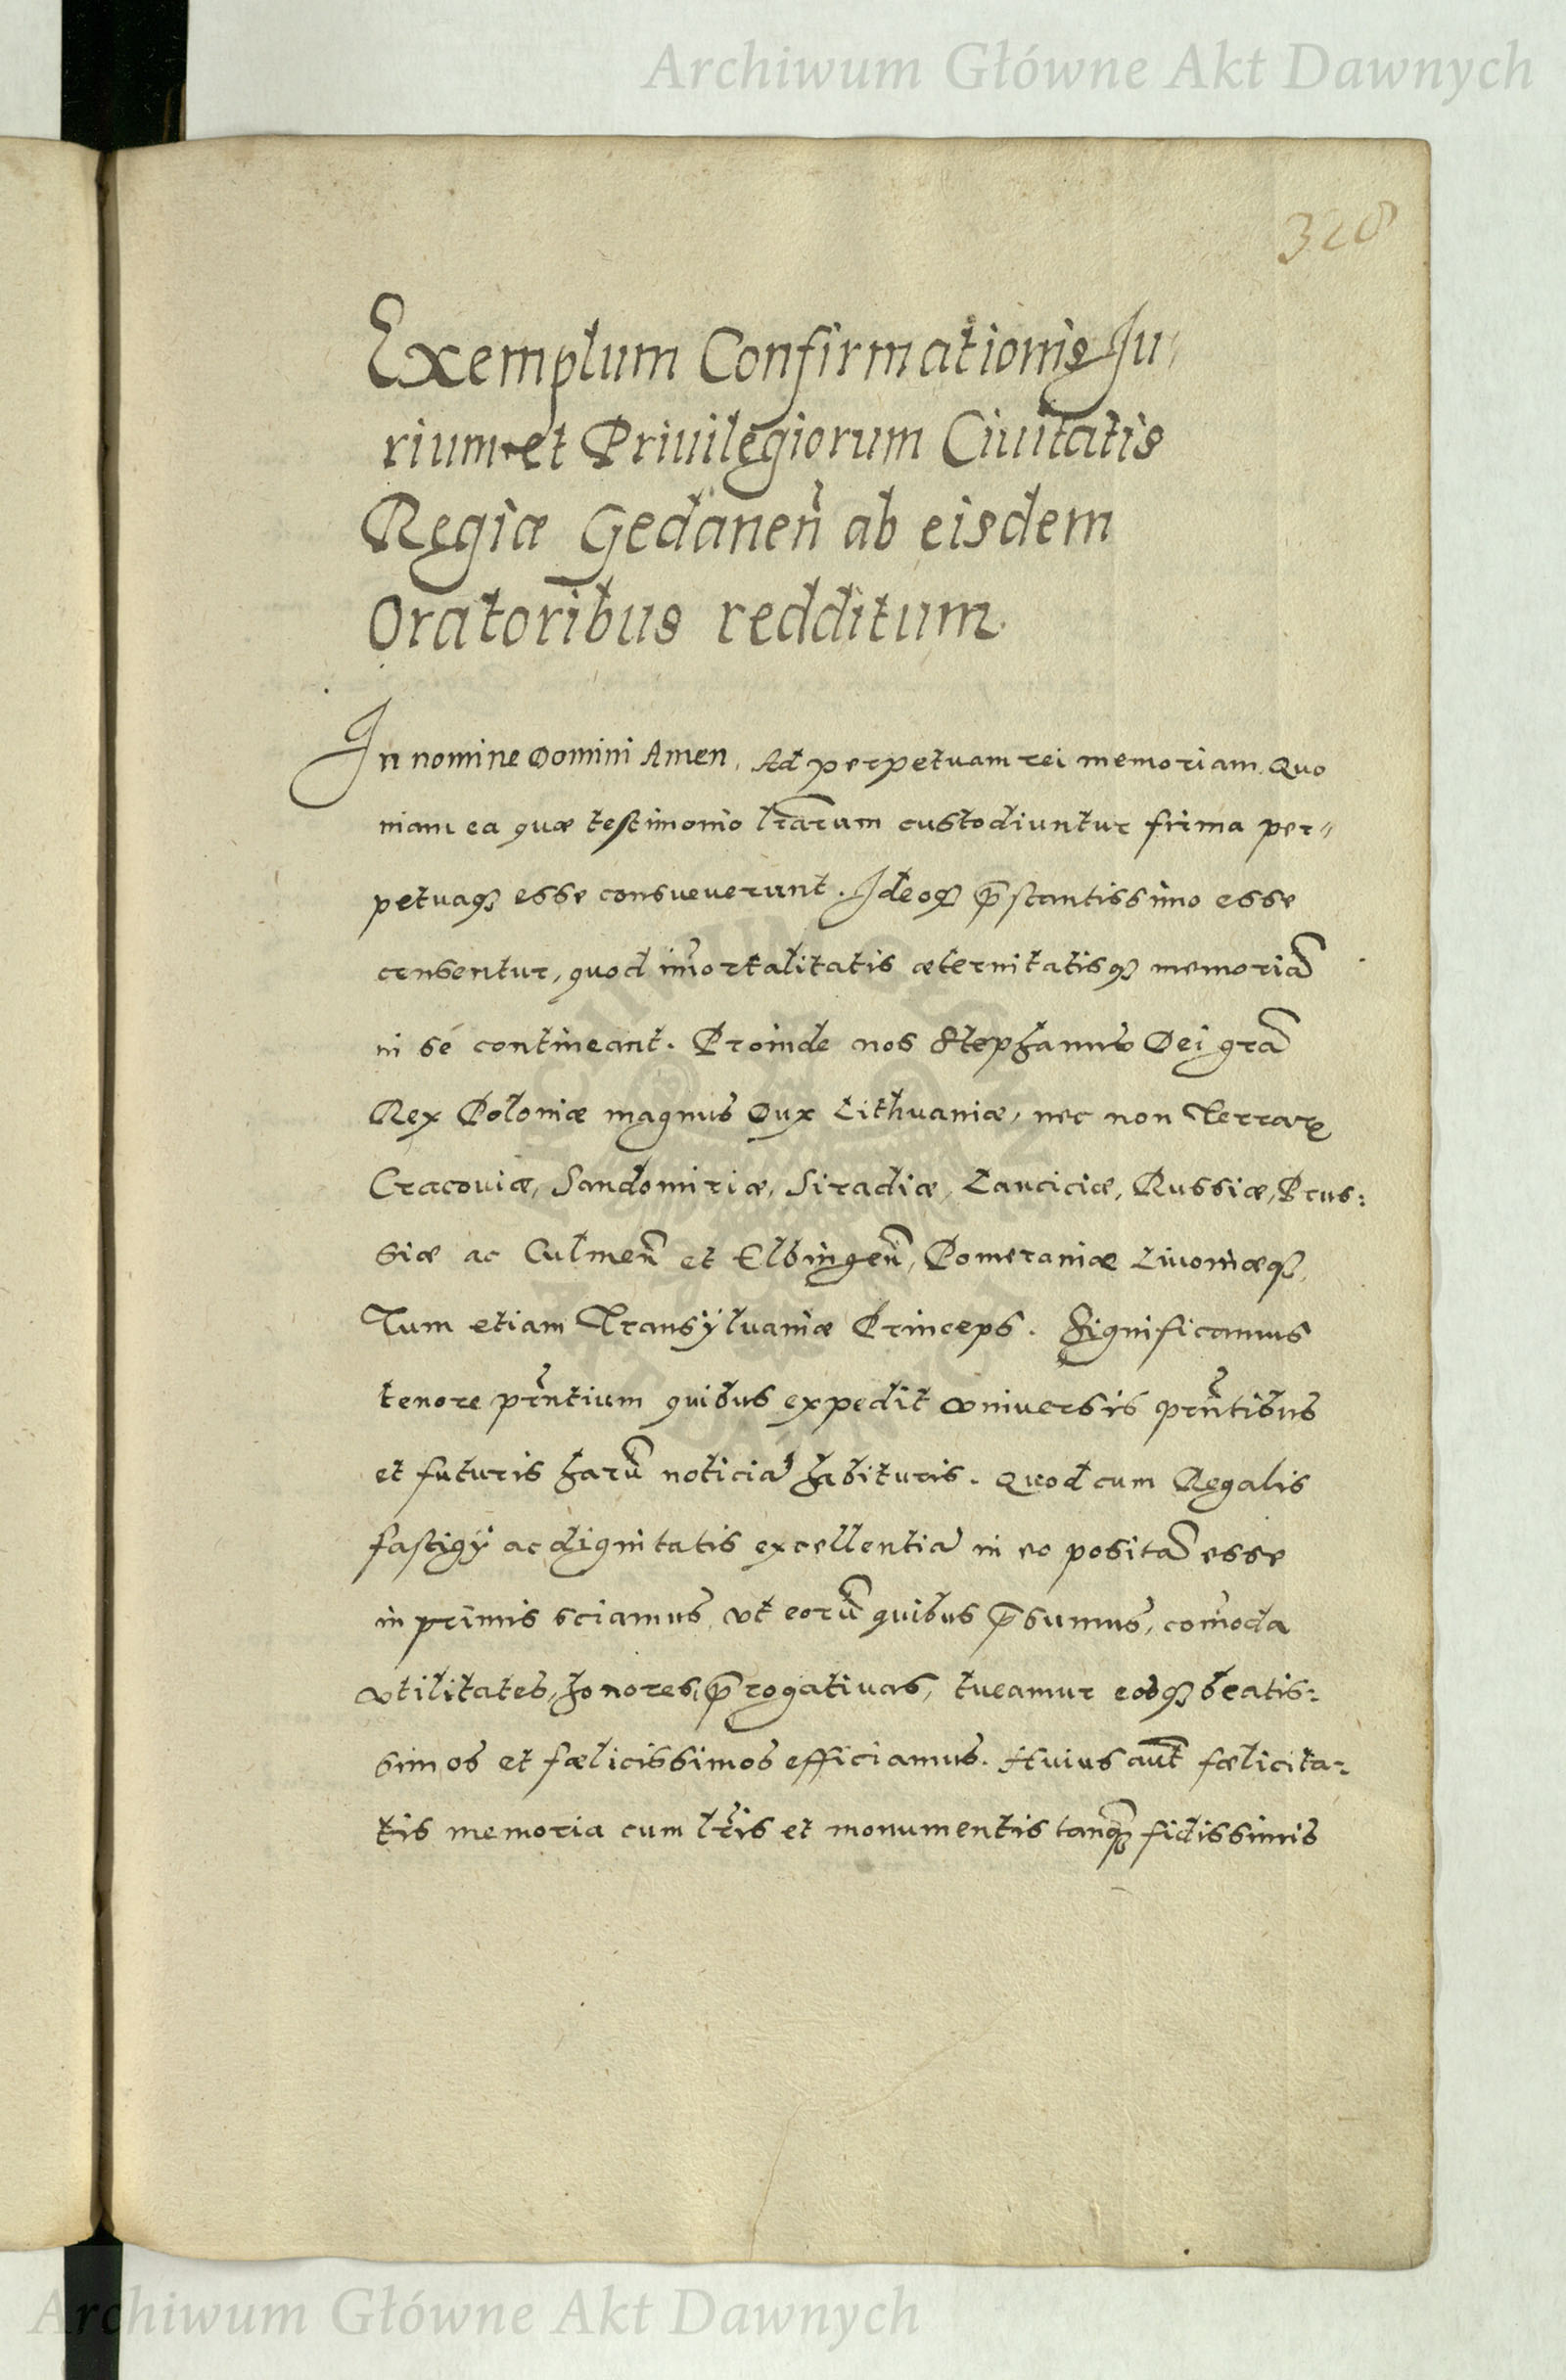 Archiwum Główne Akt Dawnych
328
Exemplum Confirmationis Ju,
rium et Priuilegiorum Ciuitatis
Regiæ Gedanen̄ ab eisdem
Oratoribus redditum.
In nomine Domini Amen, Ad perpetuam rei memoriam. Quo
niam ea quæ testimonio lr̄arum custodiuntur firma per〃
petuaqȝ esse consueuerunt. Ideoqȝ p̄stantissimo esse
censentur, quod im̄ortalitatis æternitatisqȝ memoriā
in se contineant. Proinde nos Stephanus Dei grā
Rex Poloniæ magnus Dux Lithuaniæ, nec non Terrarꝝ
Cracouiæ, Sandomiriæ, Siradiæ, Lanciciæ, Russiæ, Prus:
siæ ac Culmen̄ et Elbingen̄, Pomeraniæ Liuoniæqȝ,
Tum etiam Transÿluaniæ Princeps. Significamus
tenore pr̄ntium quibus expedit vniuersis pr̄ntibus
et futuris harū noticiā habituris. Quod cum Regalis
fastigÿ ac dignitatis excellentiā in eo positā esse
in primis sciamus, vt eorū quibus p̄sumus, com̄oda
vtilitates, honores, p̄rogatiuas, tueamur eosqȝ beatis:
simos et fælicissimos efficiamus. Huius aūt fælicita:
tis memoria cum lr̄is et monumentis tanqȝ̄ fidissimis
Archiwum Główne Akt Dawnych